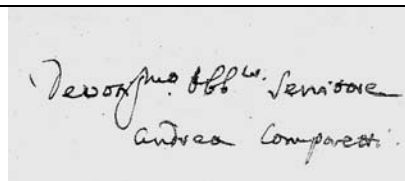 Devot.mo Obb.o Servitore
Andrea Comparetti